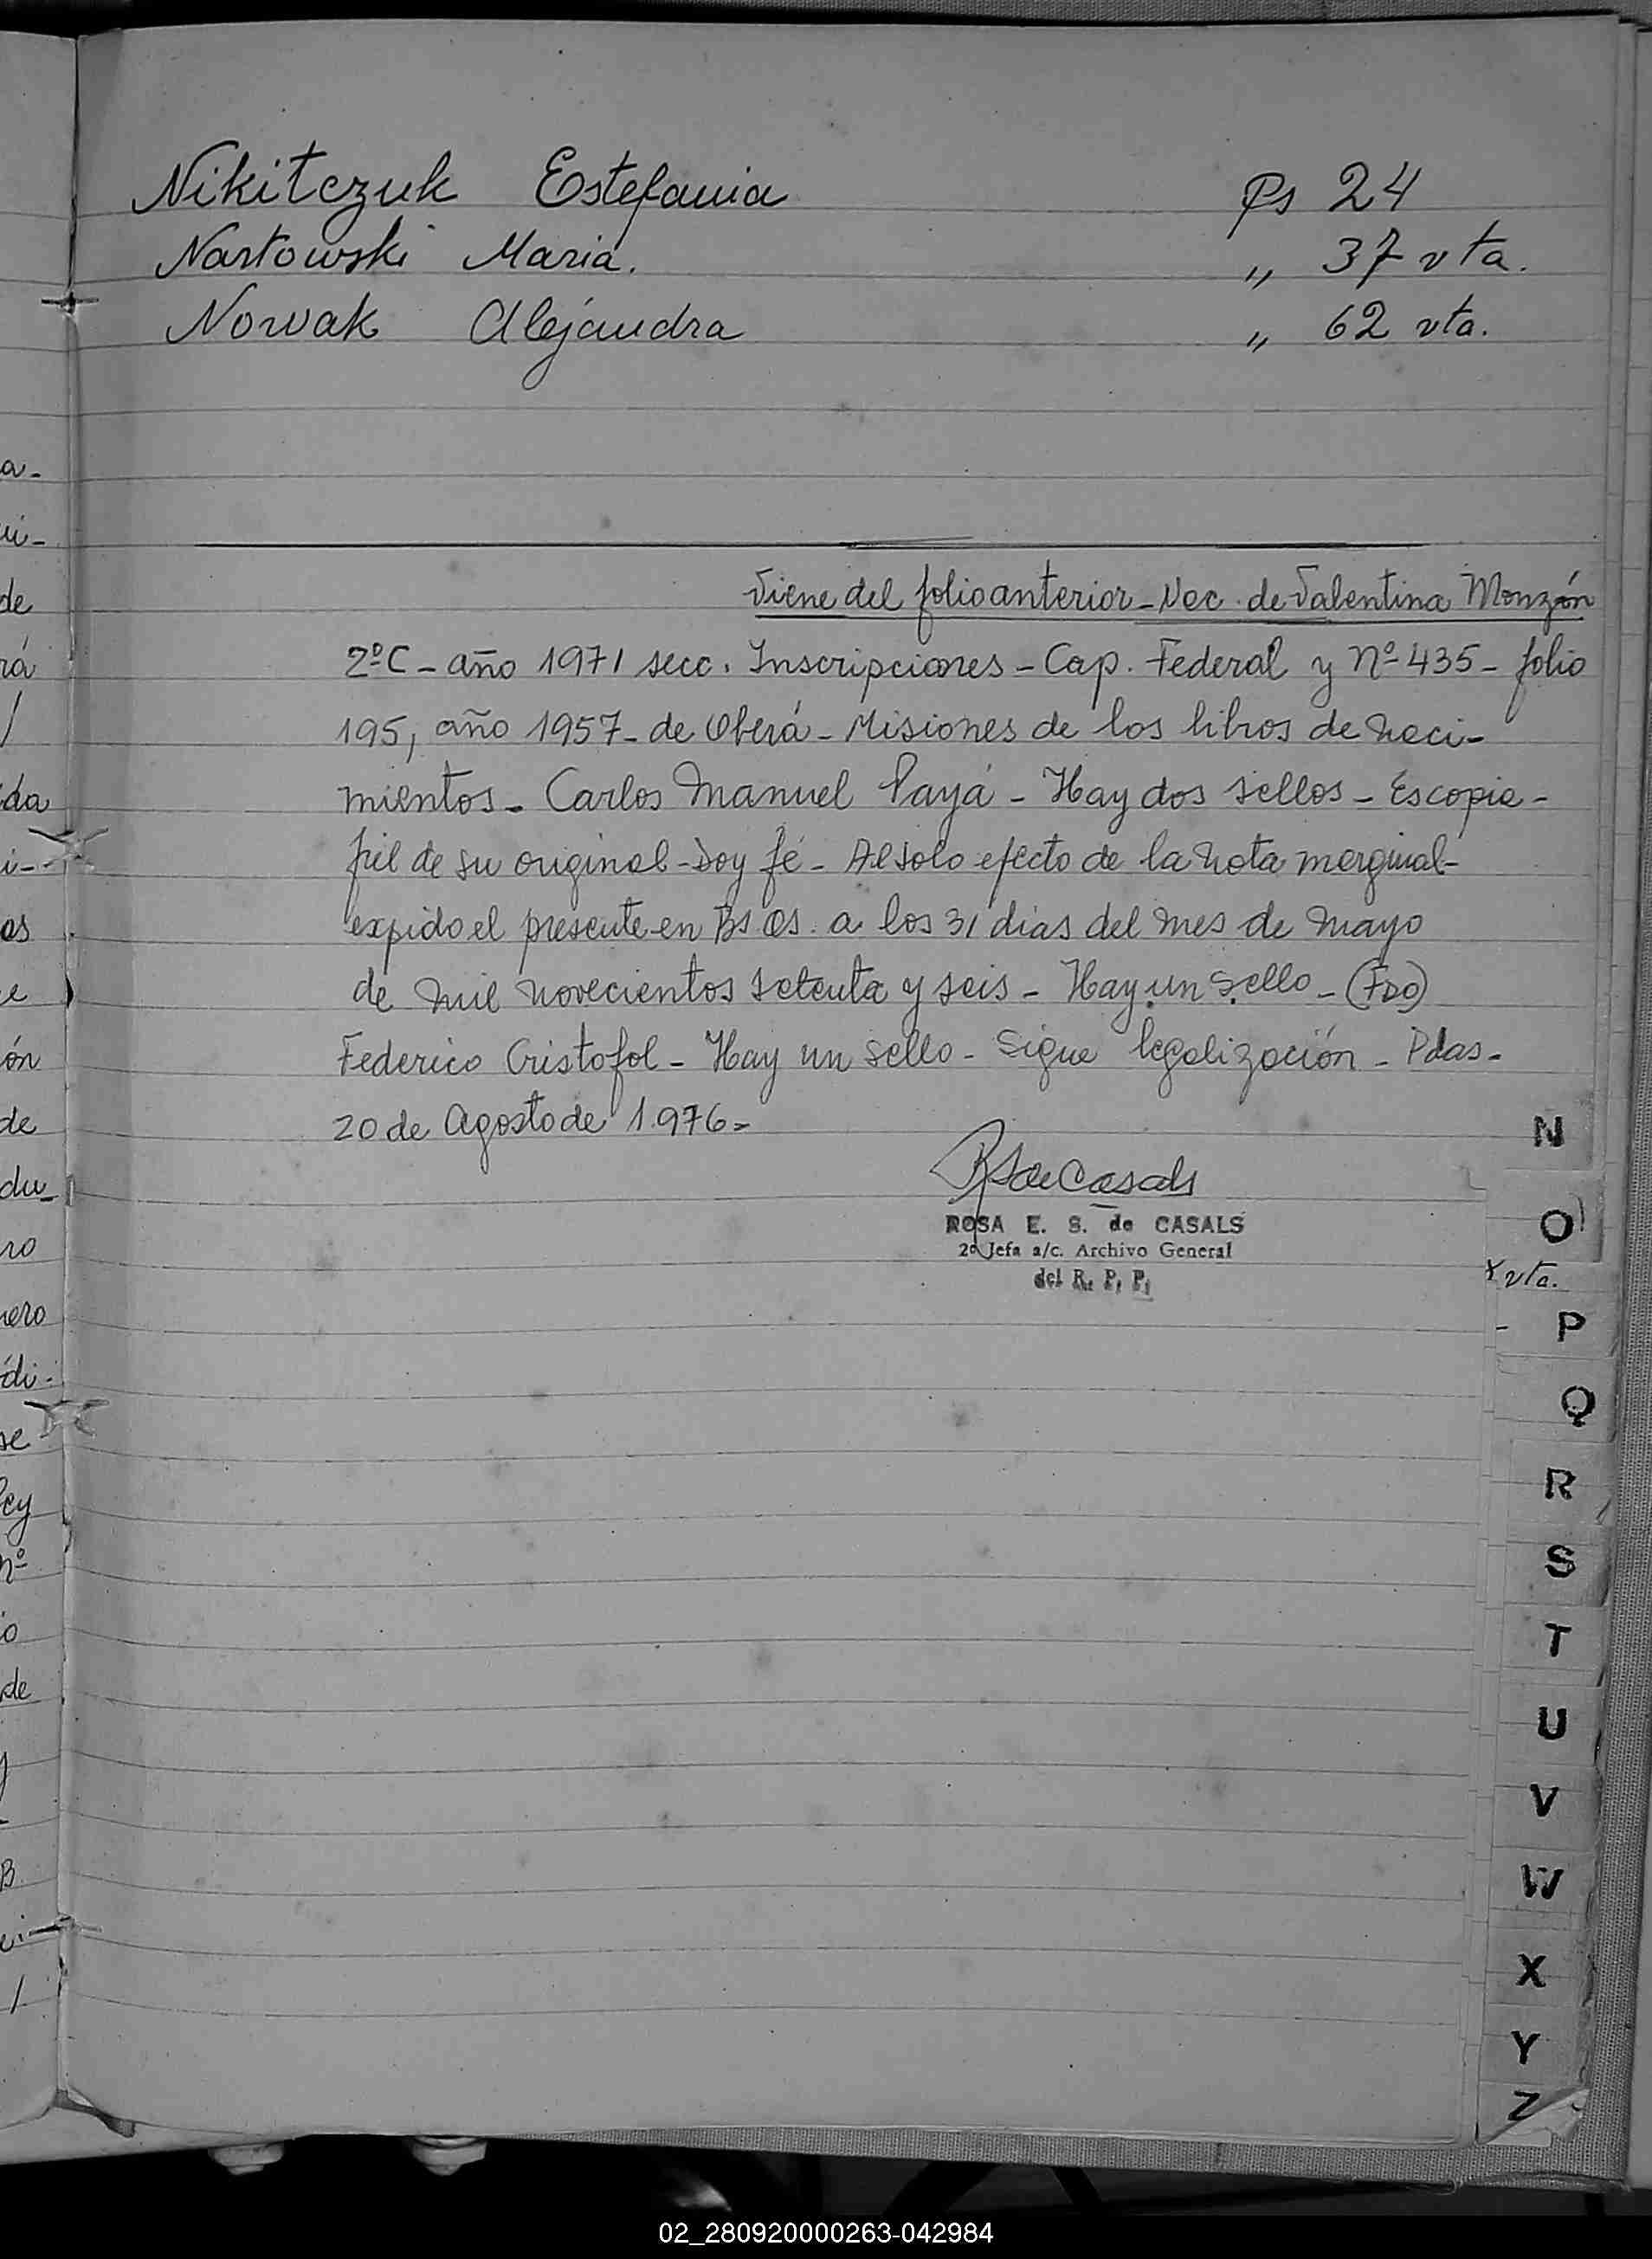 Nikitczuk Estefania Fs 24
Nartowski Maria. " 37 vta.
Nowak Alejandra " 62 vta.
Viene del folio anterior - Nac. de Valentina Monzón
2º C - año 1971 secc. Inscripciones - Cap. Federal y Nº 435 - folio
195, año 1957 - de Oberá - Misiones de los libros de naci-
mientos - Carlos Manuel Payá - Hay dos sellos - Es copia -
fiel de su original - Doy fé - Al solo efecto de la nota marginal -
expido el presente en Bs As. a los 31 dias del mes de mayo
de mil novecientos setenta y seis - Hay un sello - (Fdo)
Federico Cristofol - Hay un sello - Sigue legalización - Pdas -
20 de Agosto de 1.976 =
RS de Casals
ROSA E. S. de CASALS
2ª Jefa a/c. Archivo General
del R. P. P.
N
O
vta.
P
Q
R
S
T
U
V
W
X
Y
Z
a-
ni-
de
rá
/
da
i-
os
e
ón
de
du-
ro
nero
di-
se
ley
nº
io
de
B
/
02_280920000263-042984